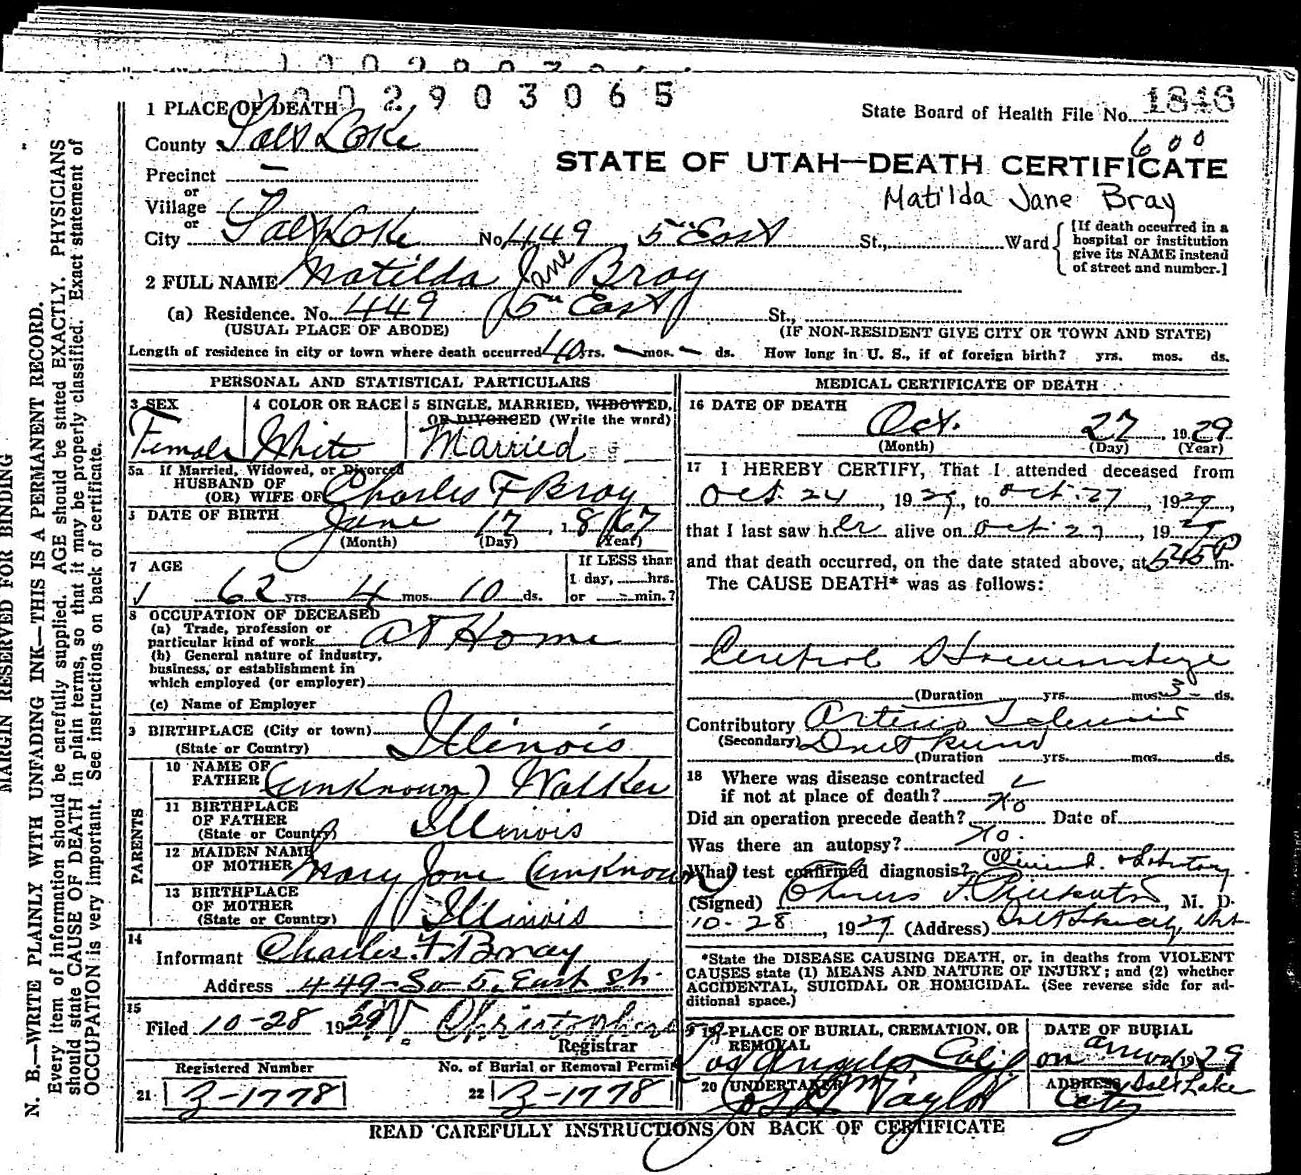 1002903065
1 PLACE OF DEATH
State Board of Health File No. 1846
County Salt Lake
600
STATE OF UTAH—DEATH CERTIFICATE
Precinct —
or
Village
Matilda Jane Bray
or
City Salt Lake No. 449 5th East St., Ward
[If death occurred in a hospital or institution give its NAME instead of street and number.]
2 FULL NAME Matilda Jane Bray
(a) Residence. No. 449 5th East St.,
(USUAL PLACE OF ABODE) (IF NON-RESIDENT GIVE CITY OR TOWN AND STATE)
Length of residence in city or town where death occurred 40 yrs. — mos. — ds. How long in U. S., if of foreign birth? yrs. mos. ds.
PERSONAL AND STATISTICAL PARTICULARS
3 SEX
Female
4 COLOR OR RACE
White
5 SINGLE, MARRIED, WIDOWED,
OR DIVORCED (Write the word)
Married
5a If Married, Widowed, or Divorced
HUSBAND OF
(OR) WIFE OF Charles F Bray
DATE OF BIRTH June 17, 1867
(Month) (Day) (Year)
7 AGE
62 yrs. 4 mos. 10 ds.
If LESS than
1 day, hrs.
or min.?
8 OCCUPATION OF DECEASED
(a) Trade, profession or
particular kind of work At Home
(b) General nature of industry,
business, or establishment in
which employed (or employer)
(c) Name of Employer
9 BIRTHPLACE (City or town)
(State or Country) Illinois
PARENTS
10 NAME OF
FATHER (Unknown) Walker
11 BIRTHPLACE
OF FATHER
(State or Country) Illinois
12 MAIDEN NAME
OF MOTHER Mary Jane (Unknown)
13 BIRTHPLACE
OF MOTHER
(State or Country) Illinois
14
Informant Charles F Bray
Address 449-So 5. East St.
15
Filed 10-28 1929
Christophers
Registrar
Registered Number
21 Z-1778
No. of Burial or Removal Permit
22 Z-1778
MEDICAL CERTIFICATE OF DEATH
16 DATE OF DEATH
Oct. 27, 1929
(Month) (Day) (Year)
17 I HEREBY CERTIFY, That I attended deceased from
Oct. 24, 1929, to Oct. 27, 1929,
that I last saw her alive on Oct. 27, 1929
and that death occurred, on the date stated above, at 545 P m.
The CAUSE DEATH* was as follows:
(Duration yrs. mos. 3 ds.
Contributory
(Secondary)
(Duration yrs. mos. ds.
18 Where was disease contracted
if not at place of death?
Did an operation precede death? No Date of
Was there an autopsy? No.
What test confirmed diagnosis?
(Signed) M. D.
10-28, 1929 (Address)
*State the DISEASE CAUSING DEATH, or, in deaths from VIOLENT
CAUSES state (1) MEANS AND NATURE OF INJURY; and (2) whether
ACCIDENTAL, SUICIDAL OR HOMICIDAL. (See reverse side for ad-
ditional space.)
19 PLACE OF BURIAL, CREMATION, OR
REMOVAL
Los Angeles Calif
DATE OF BURIAL
on 1929
20 UNDERTAKER
Taylor
ADDRESS Salt Lake
City
READ CAREFULLY INSTRUCTIONS ON BACK OF CERTIFICATE
MARGIN RESERVED FOR BINDING
N. B.—WRITE PLAINLY WITH UNFADING INK—THIS IS A PERMANENT RECORD.
Every item of information should be carefully supplied. AGE should be stated EXACTLY. PHYSICIANS
should state CAUSE OF DEATH in plain terms, so that it may be properly classified. Exact statement of
OCCUPATION is very important. See instructions on back of certificate.